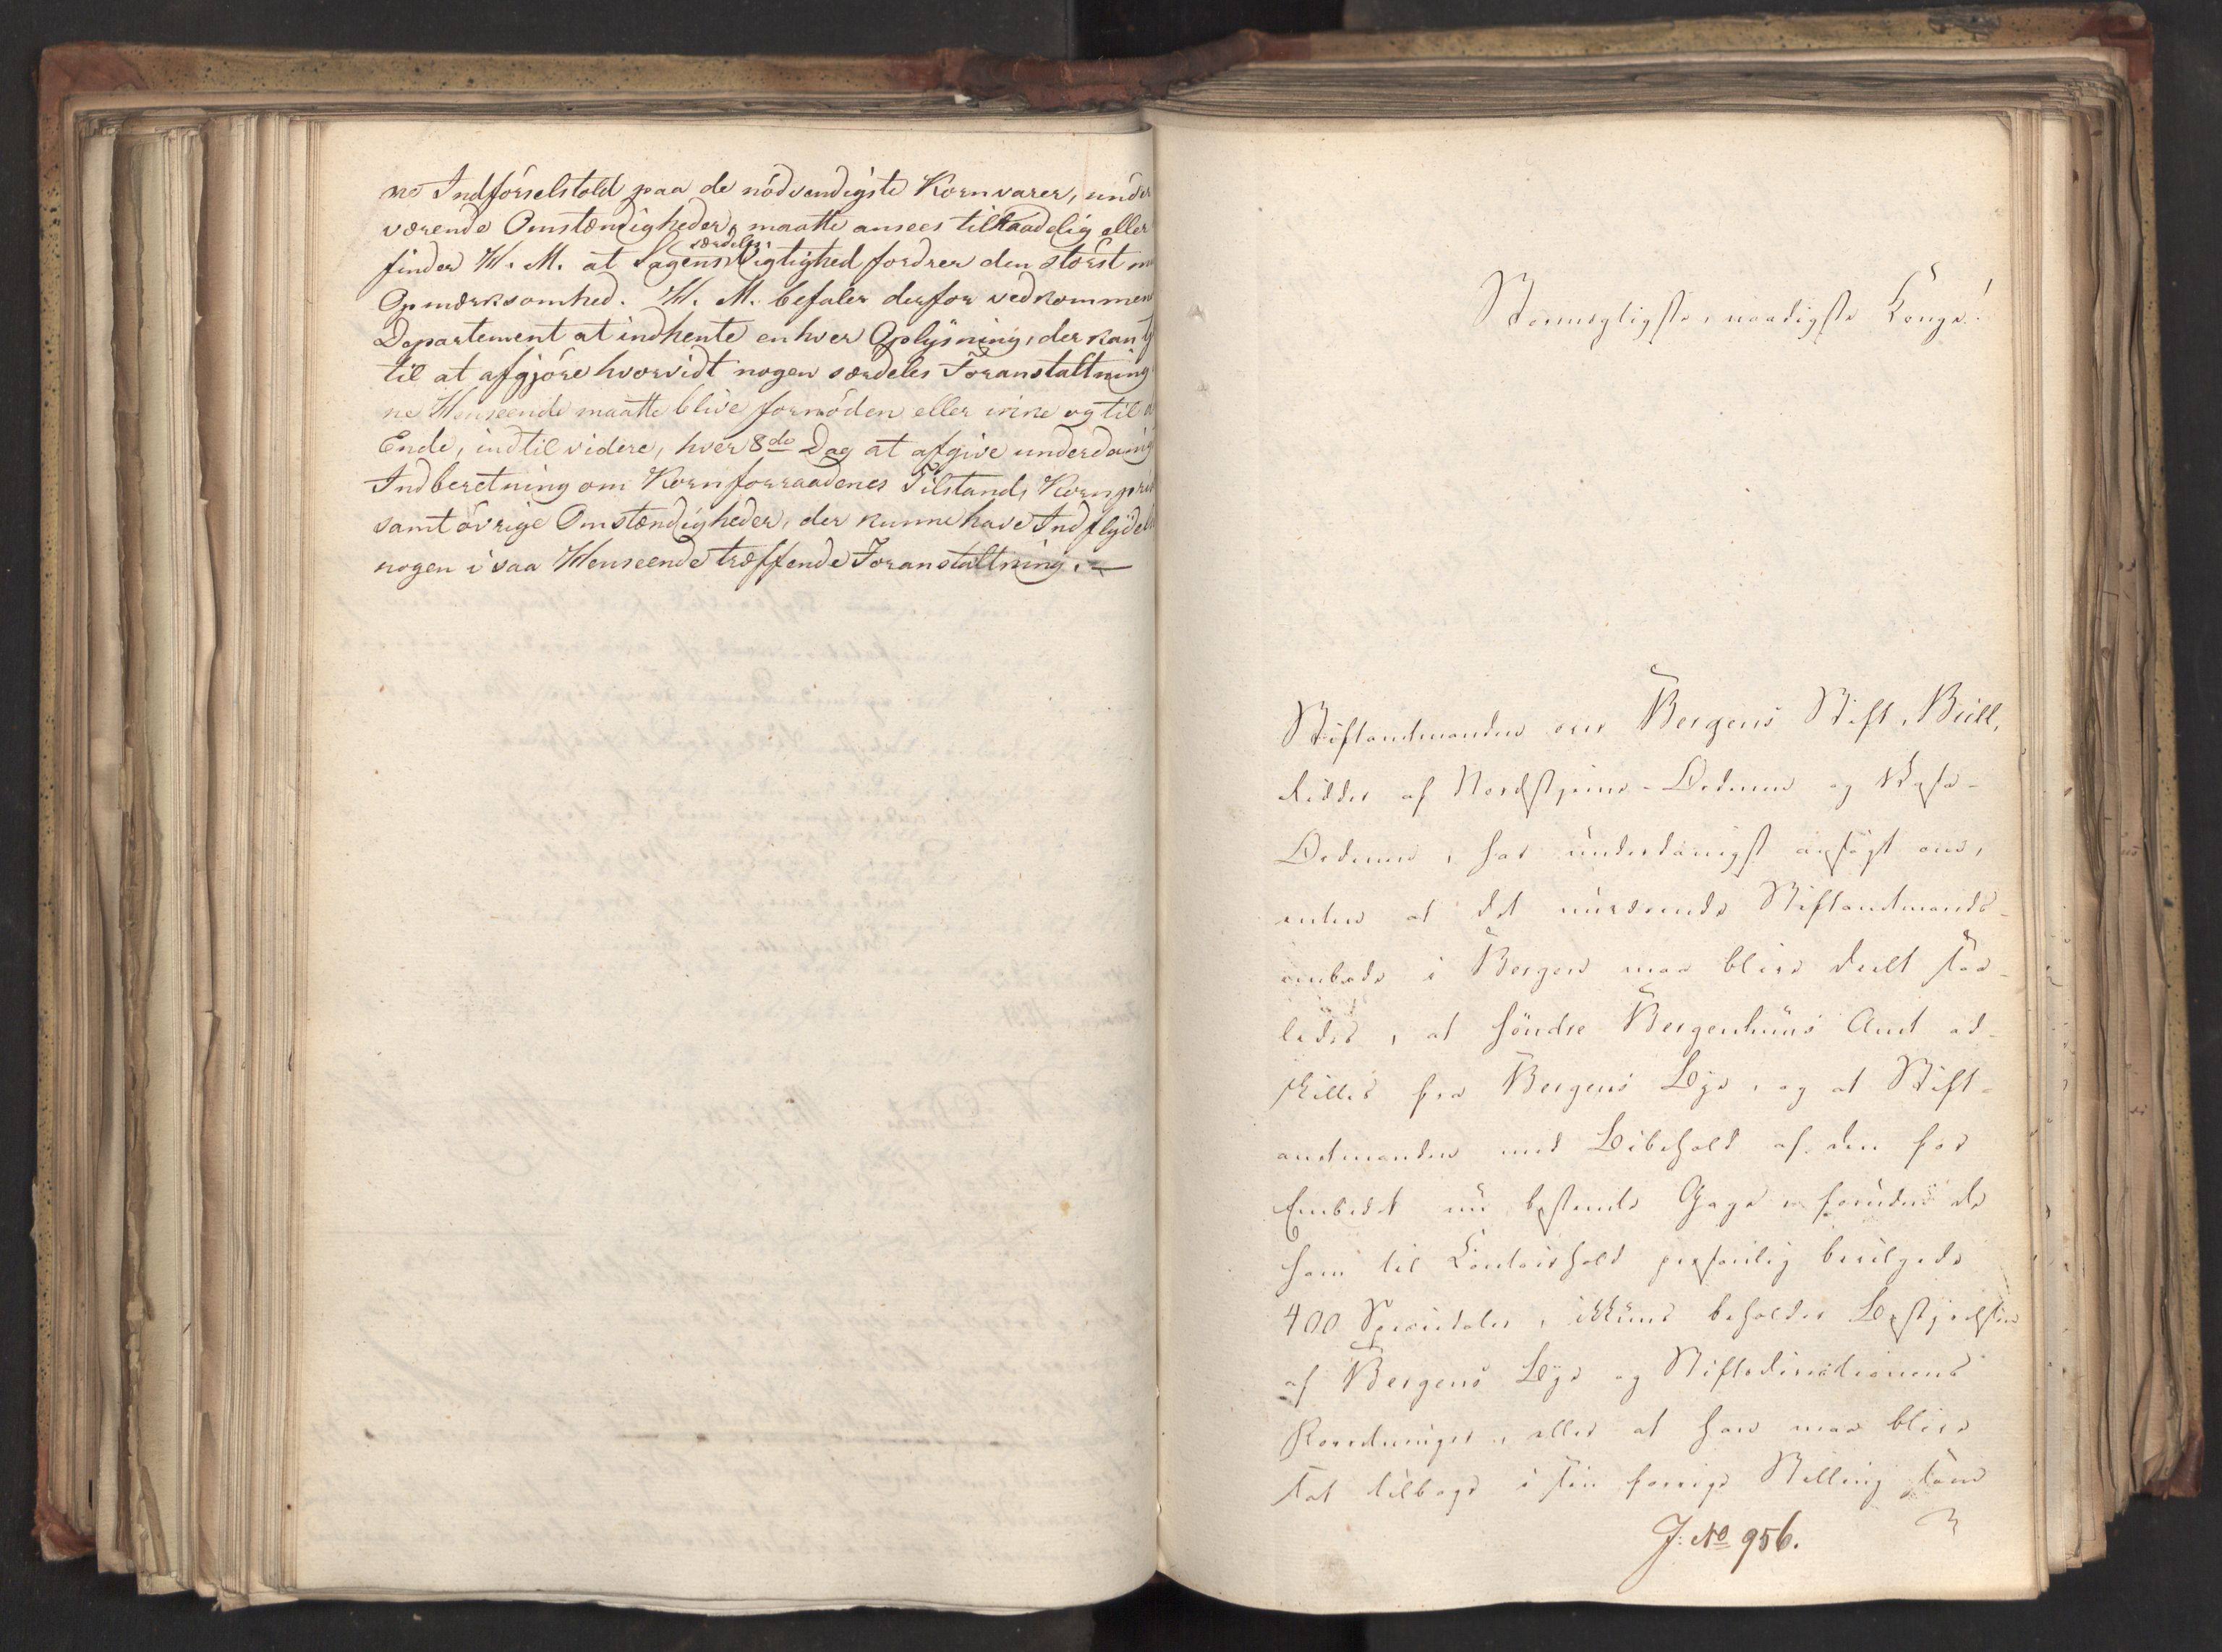 ne Indførselstold paa de nødvendigste Kornvarer, under
værende Omstændigheder, maatte ansees tilraadelig eller
finder H. M. at Sagens særdeles Vigtighed fordrer den størst m
Opmærksomhed. H. M. befaler derfor vedkommen
Departement at indhente enhver Oplysning, der kan t
til at afgjøre hvorvidt nogen særdeles Foranstaltning
ne Henseende maatte blive fornøden eller ikke og til d
Ende, indtil videre, hver 8de Dag at afgive underdanig
Indberetning om Kornforraadenes Tilstand, Kornpris
samt øvrige Omstændigheder, der kunne have Indflydels
nogen i saa Henseende træffende Foranstaltning. —
Stormægtigste, naadigste Konge!
Stiftamtmanden over Bergens Stift, Büll,
Ridder af Nordstjerne-Ordenen og Wasa-
Ordenen, har underdanigst ansøgt om,
enten at det nuværende Stiftamtmands-
embede i Bergen maa blive deelt saa-
ledes, at søndre Bergenhuus Amt ad-
skilles fra Bergens Bye, og at Stift-
amtmanden med Bibehold af den for
Embedet nu bestemte Gage foruden de
ham til Contoirhold personlig bevilgede
400 Speciedaler, ikkuns beholder Bestyrelsen
af Bergens Bye og Stiftsdirectionens
Forretninger, eller at han maa blive
sat tilbage i sin forrige Stilling som
J. No 956.